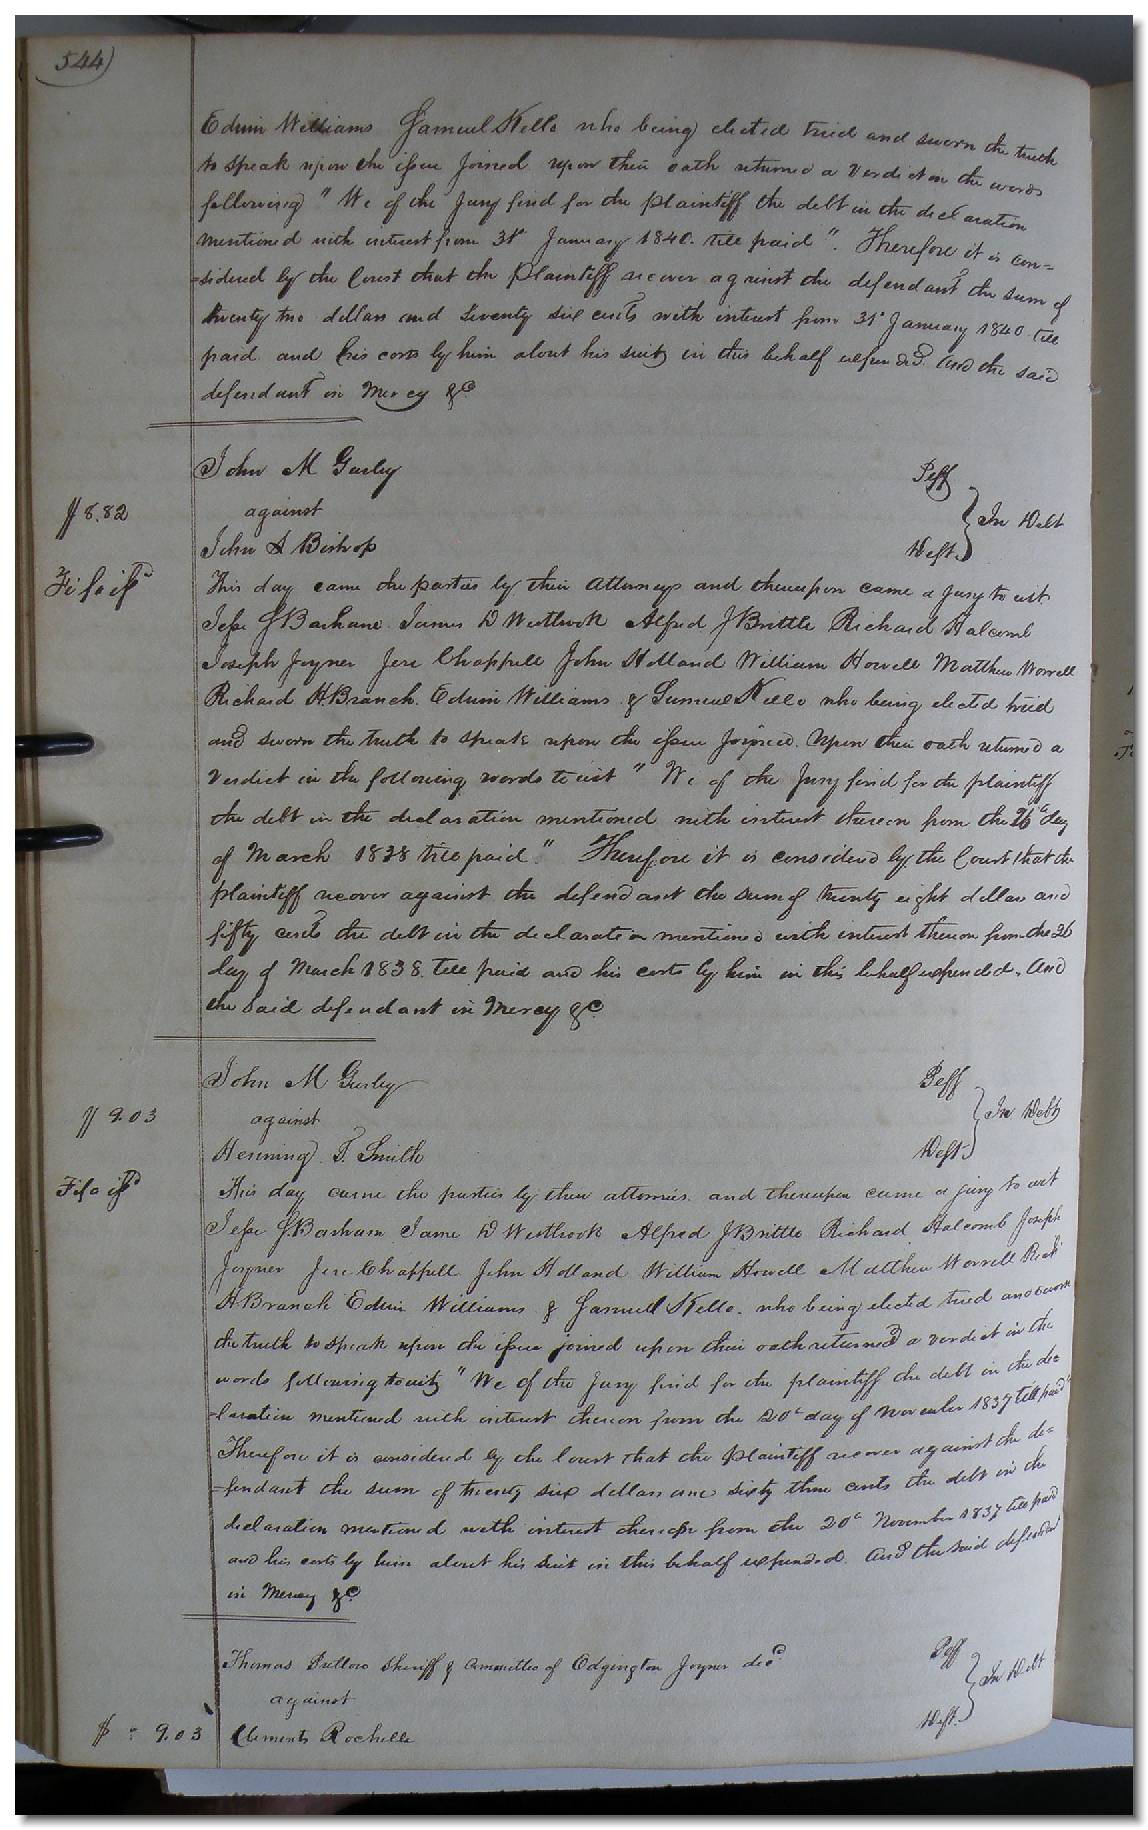 544
Edwin Williams Samuel Kello who being elected tried and sworn the truth
to speak upon the issue joined upon their oath returned a verdict in the words
following " We of the Jury find for the plaintiff the debt in the declaration
mentioned with interest from 31st January 1840. till paid ". Therefore it is con=
=sidered by the Court that the Plaintiff recover against the defendant the sum of
twenty two dollars and Seventy six cents with interest from 31st January 1840 till
paid and his costs by him about his suit in this behalf expended And the said
defendant in Mercy &c
John M Gurley Plff
$8.82 against In Debt
John A Bishop Deft.
Fi fa issd
This day came the parties by their Attorneys and thereupon came a Jury to wit
Jesse J Barham James D Westbrook Alfred J Brittle Richard Halcomb
Joseph Joyner Jere Chappell John Holland William Howell Matthew Worrell
Richard H. Branch. Edwin Williams & Samuel Kello who being elected tried
and sworn the truth to speak upon the issue Joined. Upon their oath returned a
Verdict in the following words to wit " We of the Jury find for the plaintiff
the debt in the declaration mentioned with interest thereon from the 26th day
of March 1838 till paid." Therefore it is considered by the Court that the
plaintiff recover against the defendant the sum of twenty eight dollars and
fifty cents the debt in the declaration mentioned with interest thereon from the 26
day of March 1838. till paid and his costs by him in this behalf expended. And
the said defendant in Mercy &c
John M Gurley Plff
$9.03 against In Debt
Henning T. Smith Deft.
Fi fa issd
This day came the parties by their attornies and thereupon came a jury to wit
Jesse J. Barham Jame D Westbrook Alfred J Brittle Richard Halcomb Joseph
Joyner Jere Chappell John Holland William Howell Matthew Worrell Richd
H Branch Edwin Williams & Samuel Kello. who being elected tried and sworn
the truth to speak upon the issue joined upon their oath returned a verdict in the
words following to wit " We of the Jury find for the plaintiff the debt in the de=
=laration mentioned with interest thereon from the 20th day of November 1837 till paid"
Therefore it is considered by the Court that the plaintiff recover against the de=
=fendant the sum of twenty six dollars and sixty three cents the debt in the
declaration mentioned with interest thereon from the 20th November 1837 till paid
and his costs by him about his suit in this behalf expended. And the said defendant
in Mercy &c.
Thomas Pretlow Sheriff & Committee of Edgington Joyner decd Plff
against In Debt
$ : 9.03 Clements Rochelle Deft.